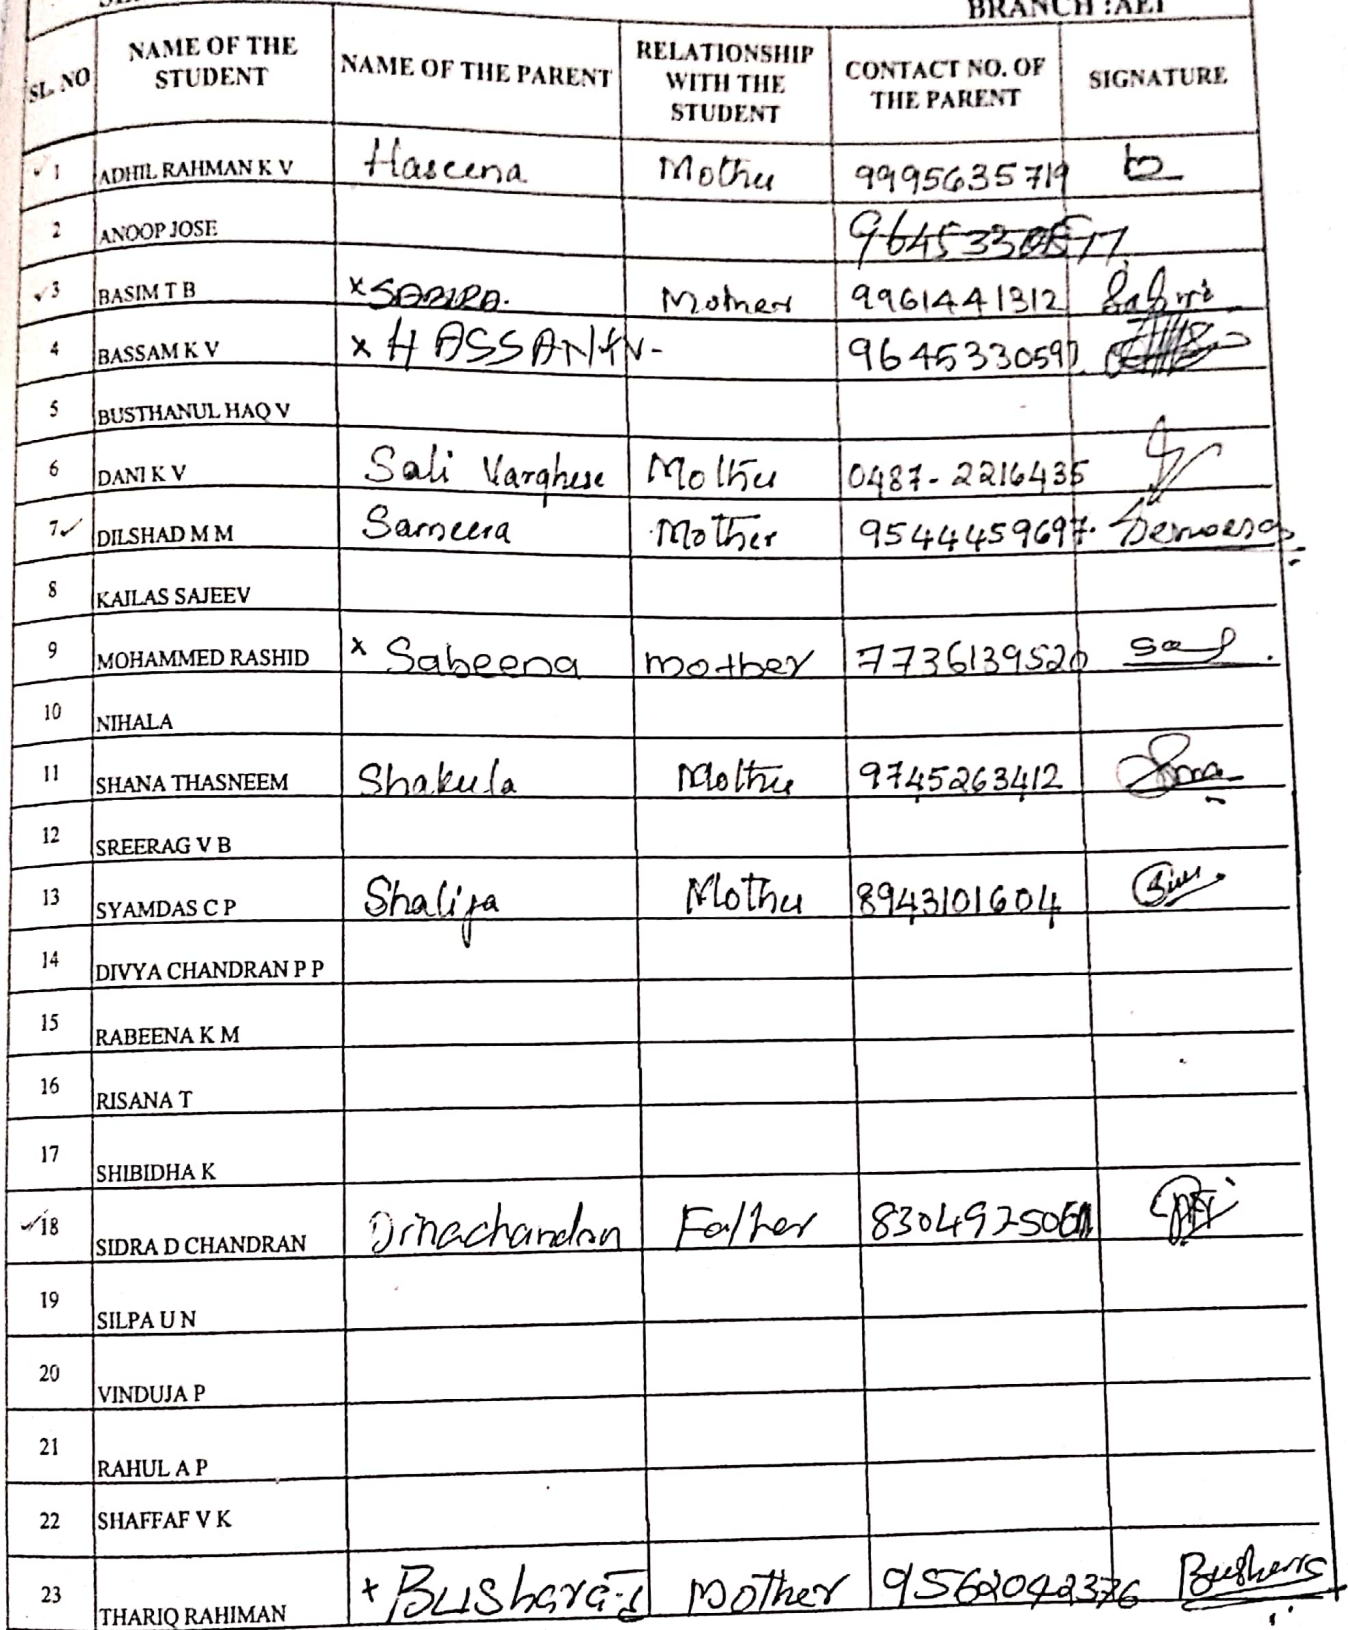 BRANCH :AEI
SL. NO NAME OF THE STUDENT NAME OF THE PARENT RELATIONSHIP WITH THE STUDENT CONTACT NO. OF THE PARENT SIGNATURE
1 ADHIL RAHMAN K V Haseena Mother 9995635719
2 ANOOP JOSE
3 BASIM T B x SABIRA. Mother 9961441312 Sabira
4 BASSAM K V x HASSAN KV- 9645330597
5 BUSTHANUL HAQ V
6 DANI K V Sali Varghese Mother 0487-2216435
7 DILSHAD M M Sameera Mother 9544459697.
8 KAILAS SAJEEV
9 MOHAMMED RASHID x Sabeena mother 7736139520
10 NIHALA
11 SHANA THASNEEM Shakula Mother 9745263412
12 SREERAG V B
13 SYAMDAS C P Shalija Mother 8943101604
14 DIVYA CHANDRAN P P
15 RABEENA K M
16 RISANA T
17 SHIBIDHA K
18 SIDRA D CHANDRAN Father
19 SILPA U N
20 VINDUJA P
21 RAHUL A P
22 SHAFFAF V K
23 THARIQ RAHIMAN + Mother 9562042376